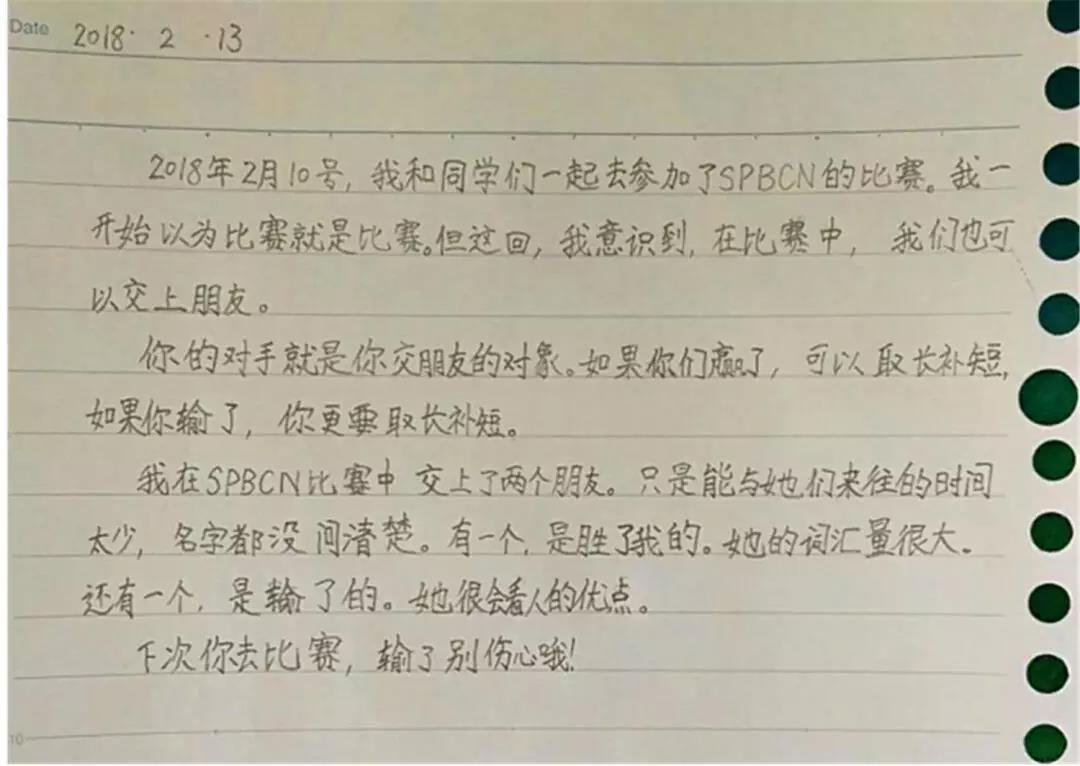 Date 2018. 2 .13
2018年2月10号,我和同学们一起去参加了SPBCN的比赛。我一
开始以为比赛就是比赛。但这回,我意识到,在比赛中,我们也可
以交上朋友。
你的对手就是你交朋友的对象。如果你们赢了,可以取长补短,
如果你输了,你更要取长补短。
我在SPBCN比赛中交上了两个朋友。只是能与她们来往的时间
太少,名字都没问清楚。有一个,是胜了我的。她的词汇量很大。
还有一个,是输了的。她很会看人的优点。
下次你去比赛,输了别伤心哦!
10